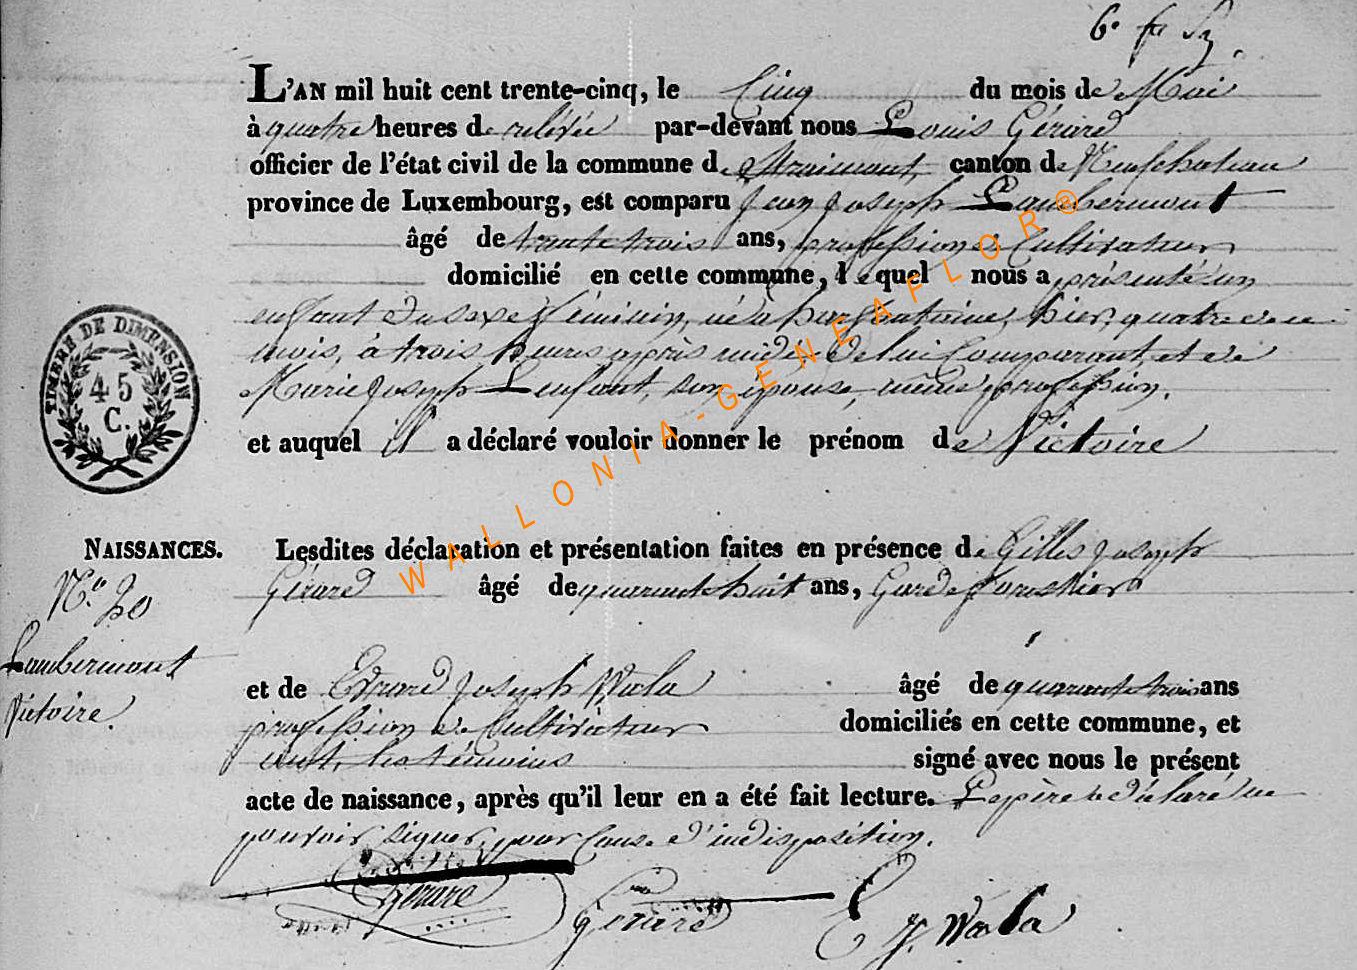 6e
L'AN mil huit cent trente-cinq, le Cinq du mois de Mai
à quatre heures de relévée par-devant nous Louis Gérard
officier de l'état civil de la commune de Straimont, canton de Neufchateau
province de Luxembourg, est comparu Jean Joseph Lambermont
âgé de trente trois ans, profession de Cultivateur
domicilié en cette commune, lequel nous a présenté un
enfant du sexe féminin, né à hier, quatre de ce
mois, à trois heures après midi de lui Comparant, et de
Marie Joseph Lenfant, son épouse, même profession.
et auquel il a déclaré vouloir donner le prénom de Victoire
TIMBRE DE DIMENSION
45
C.
NAISSANCES.
N.o 20
Lambermont
Victoire.
Lesdites déclaration et présentation faites en présence de Gilles Joseph
Gérard âgé de quarante huit ans, Garde forestier
et de Evrard Joseph Wala âgé de quarante trois ans
profession de Cultivateur domiciliés en cette commune, et
ont, les témoins signé avec nous le présent
acte de naissance, après qu'il leur en a été fait lecture. Le père a déclaré ne
pouvoir signer, pour Cause d'indisposition.
Gérard
Gérard
E J. Wala
WALLONIA-GENEAFLOR®